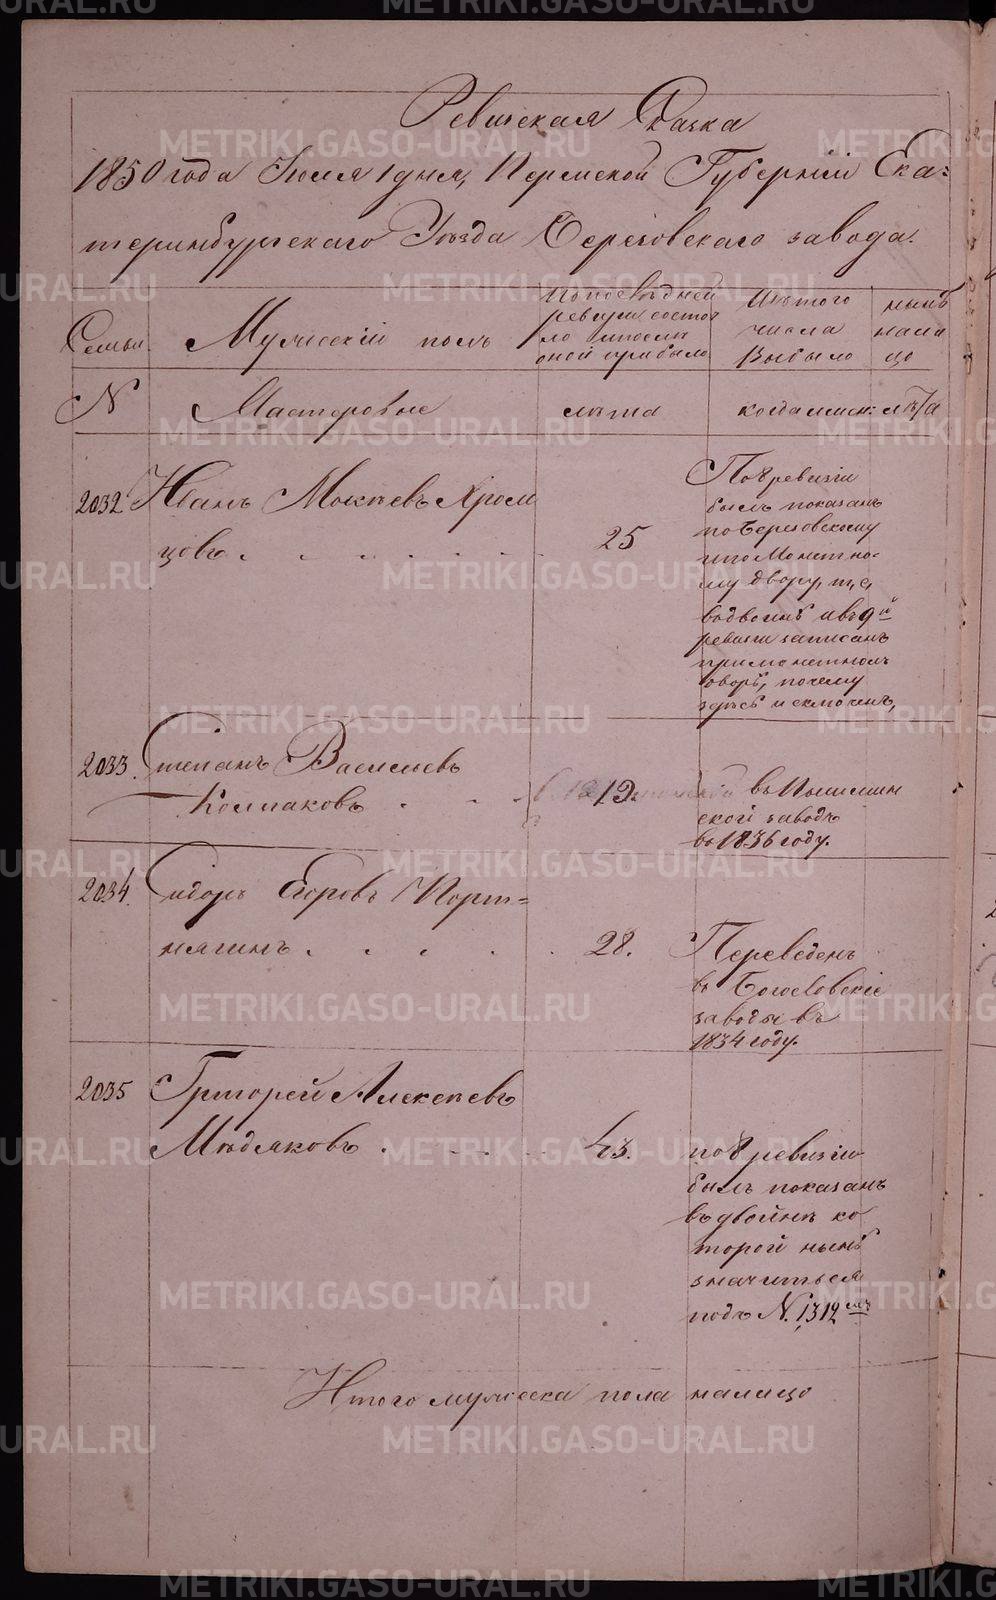 Ревижская Сказка
1850 года Июля 1 дня, Пермской Губерніи Ека=
теринбургскаго Уѣзда Березовскаго завода.
Семьи Мужескій полъ
По последней
ревизіи состоя
ло и после
оной прибыло
Изъ того
числа
Выбыло
нынѣ
нали
цо
N Мастеровые лѣта когда имен: лѣта
2032 Иванъ Мокѣевъ Хром
цовъ 25
По 8 ревизіи
былъ показанъ
по Березовскому
и по Монетно-
му двору, т, е,
вдвойнѣ и въ 9й
ревизіи записанъ
при монетномъ
дворѣ, почему
здѣсь и исключенъ,
2033. Степанъ Васильевъ
Колпаковъ 19.
въ Пышмин
ской заводъ
въ 1836 году.
2034. Сидоръ Егоровъ Порт=
нягинъ 28.
Переведенъ
въ Богословскіе
заводы въ
1834 году.
2035 Григорей Алексѣевъ
Мѣдяковъ 43.
по 8 ревизіи
былъ показанъ
въ двойнѣ ко
торой нынѣ
значиться
подъ N. 1312мъ
Итого мужеска пола налицо
METRIKI.GASO-URAL.RU